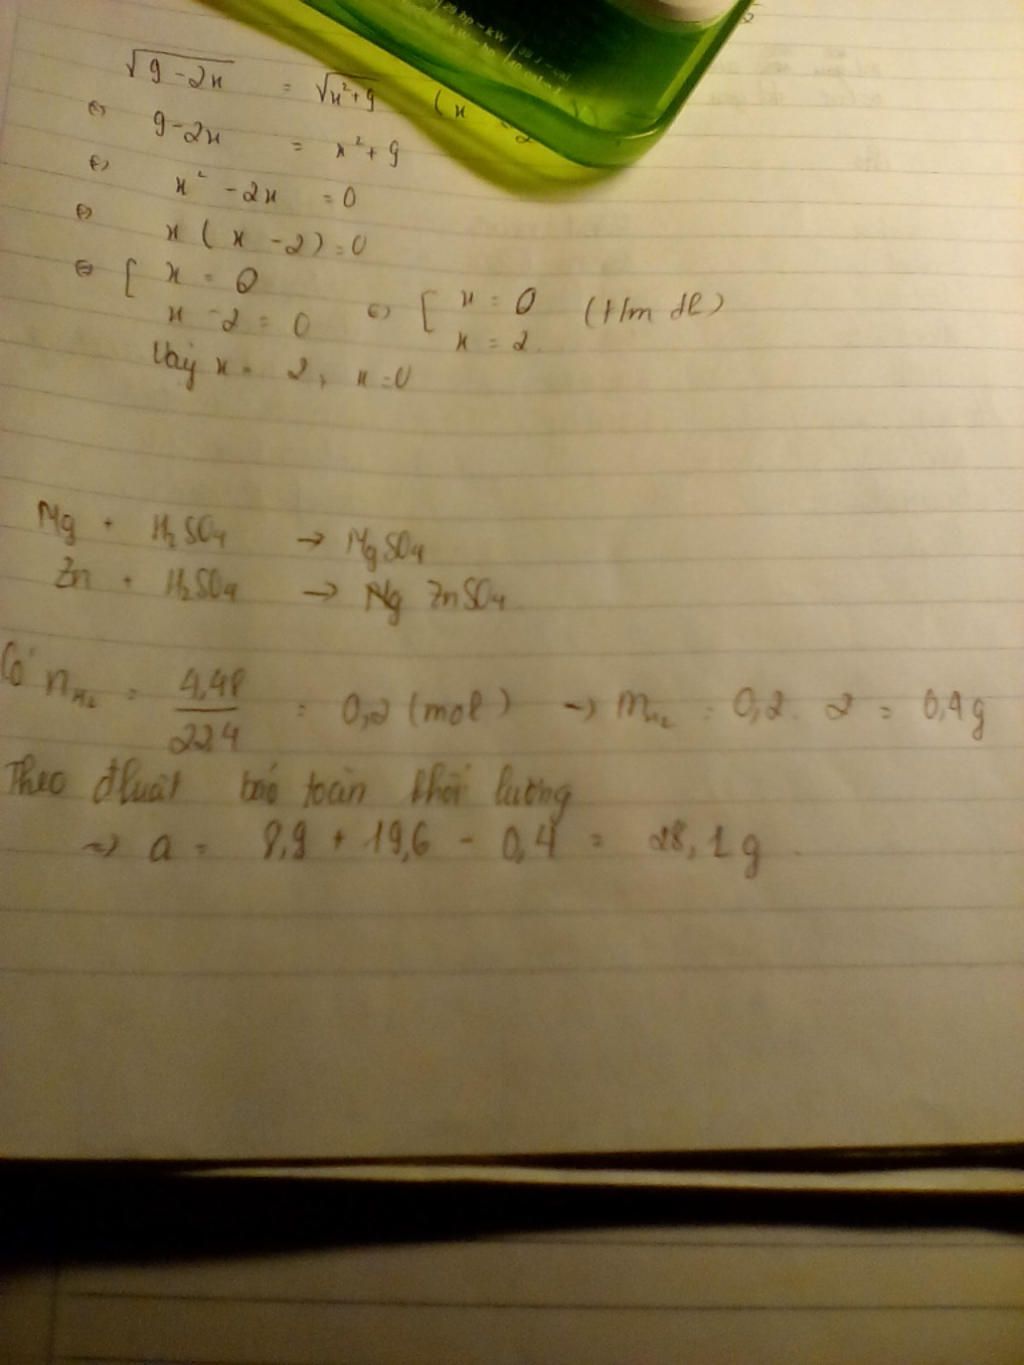 √9-2x = √x²+9 (x
⇔ 9-2x = x²+9
⇔ x² -2x = 0
⇔ x (x -2) = 0
⇔ [ x = 0
x -2 = 0 ⇔ [ x = 0 (t/m đk)
x = 2.
Vậy x = 2, x=0
Mg + H₂SO₄ → MgSO₄
Zn + H₂SO₄ → ZnSO₄
Có n_H₂ = 4,48 / 22,4 = 0,2 (mol) → m_H₂ = 0,2. 2 = 0,4g
Theo đluật bảo toàn khối lượng
=> a = 8,9 + 19,6 - 0,4 = 28,1g